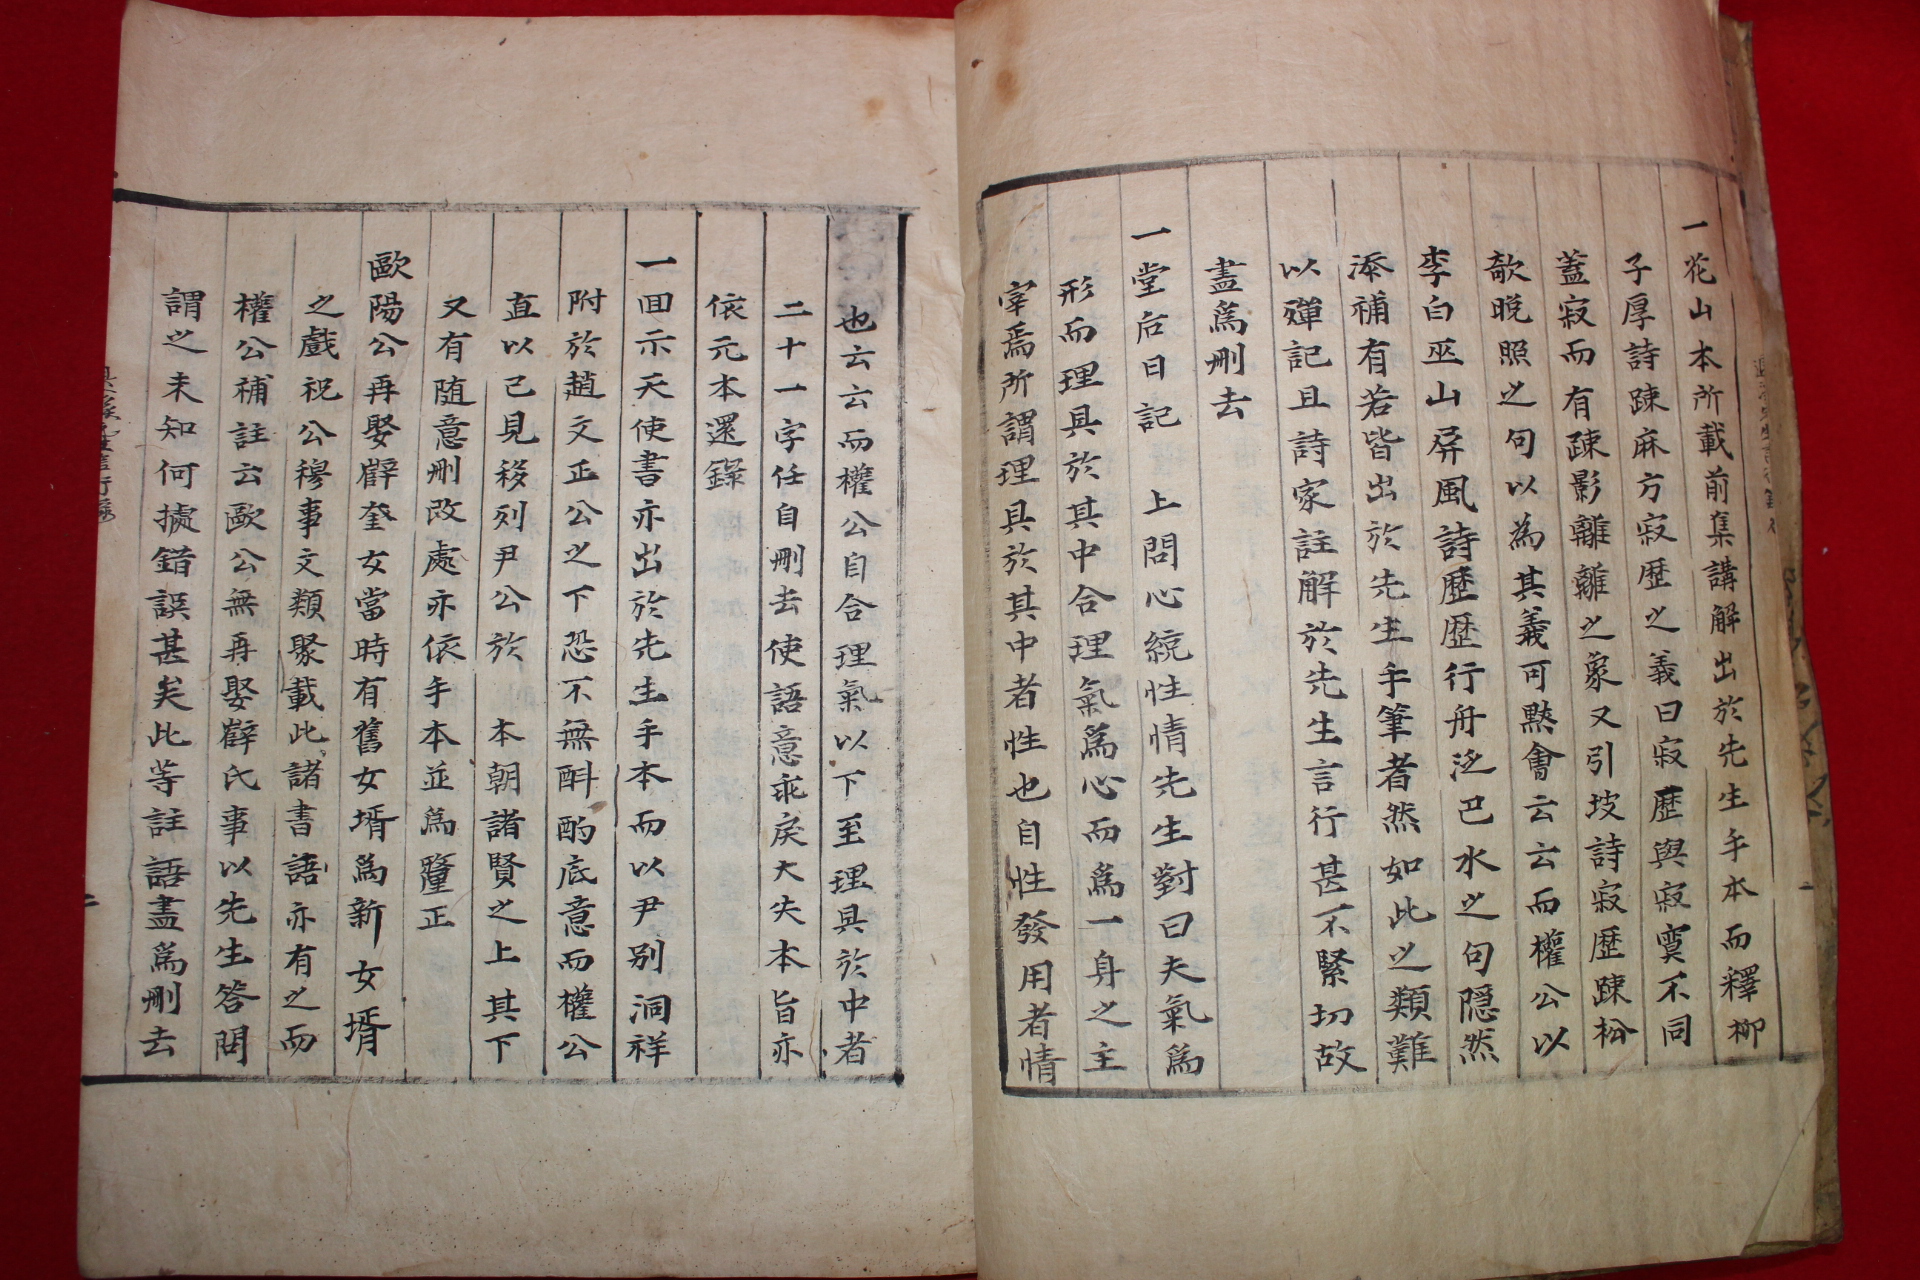 一花山本所載前集講解出於先生手本而釋柳
子厚詩踈麻方寂歴之義曰寂歷與寂寞不同
蓋寂而有踈影離離之象又引坡詩寂歷踈松
欹晚照之句以為其義可黙會云云而權公以
李白巫山屛風詩歷歷行舟泛巴水之句隠然
添補有若皆出於先生手筆者然如此之類難
以殫記且詩家註解於先生言行甚不緊切故
盡爲删去
一堂后日記 上問心統性情先生對曰夫氣爲
形而理具於其中合理氣爲心而爲一身之主
宰焉所謂理具於其中者性也自性發用者情
也云云而權公自合理氣以下至理具於中者
二十一字任自删去使語意乖戾大失本旨亦
依元本還錄
一回示天使書亦出於先生手本而以尹别洞祥
附於趙文正公之下恐不無斟酌底意而權公
直以己見移列尹公於 本朝諸賢之上其下
又有随意删改處亦依手本並爲釐正
歐陽公再娶薜奎女當時有舊女壻爲新女壻
之戲祝公穆事文類聚載此諸書語亦有之而
權公補註云歐公無再娶薜氏事以先生答問
謂之未知何據錯誤甚矣此等註語盡爲删去